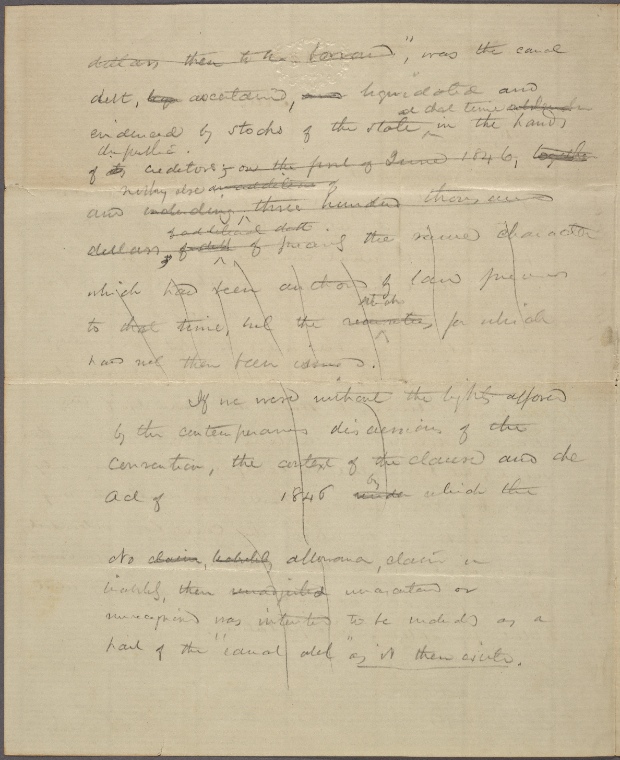 dollars then to be borrowed", was the canal
debt, ascertained, liquidated and
at that time
evidenced by stocks of the state in the hands
the public.
of creditors on the first of June 1846, together
nothing else in addition
and including three hundred thousand
additional debt.
dollars of debt of precisely the same character
which had been authorized by law previous
stock
to that time, but the securities, for which
had not then been issued.
If we were without the lights afforded
by the contemporaneous discussions of the
Convention, the context of the clause and the
by
Act of 1846 under which the
No claim, liability, allowance, claim or
liability, then unadjusted unascertained or
unrecognized was intended to be included as a
part of the "canal debt" as it then exists.